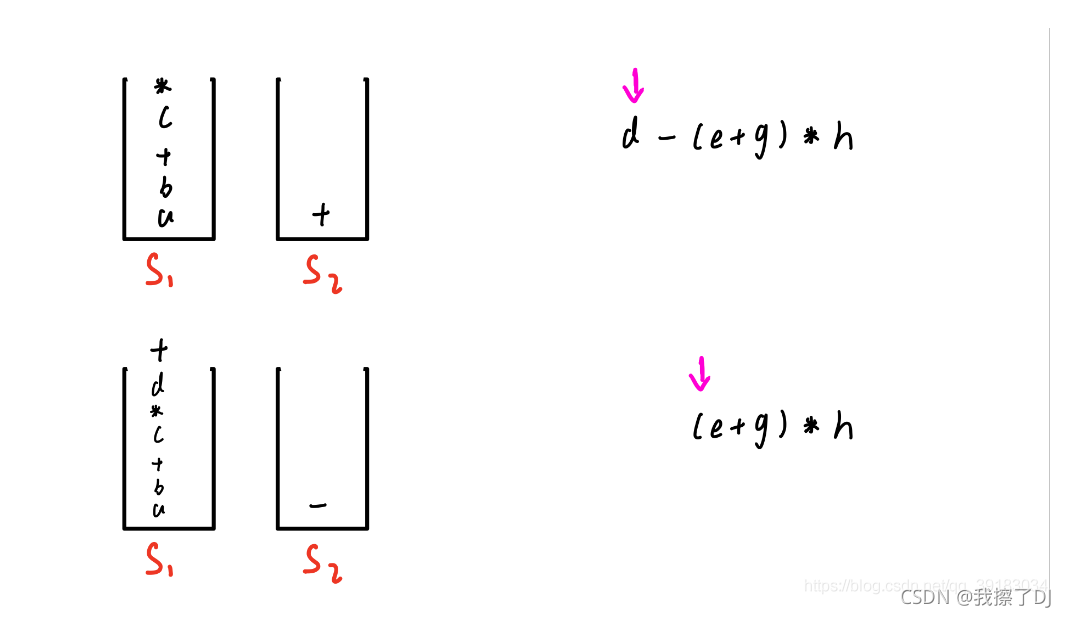 *
c
+
b
a
+
S₁
S₂
d - (e+g) * h
+
d
*
c
+
b
a
-
S₁
S₂
(e+g) * h
https://blog.csdn.net/qq_39183034
CSDN @我擦了DJ